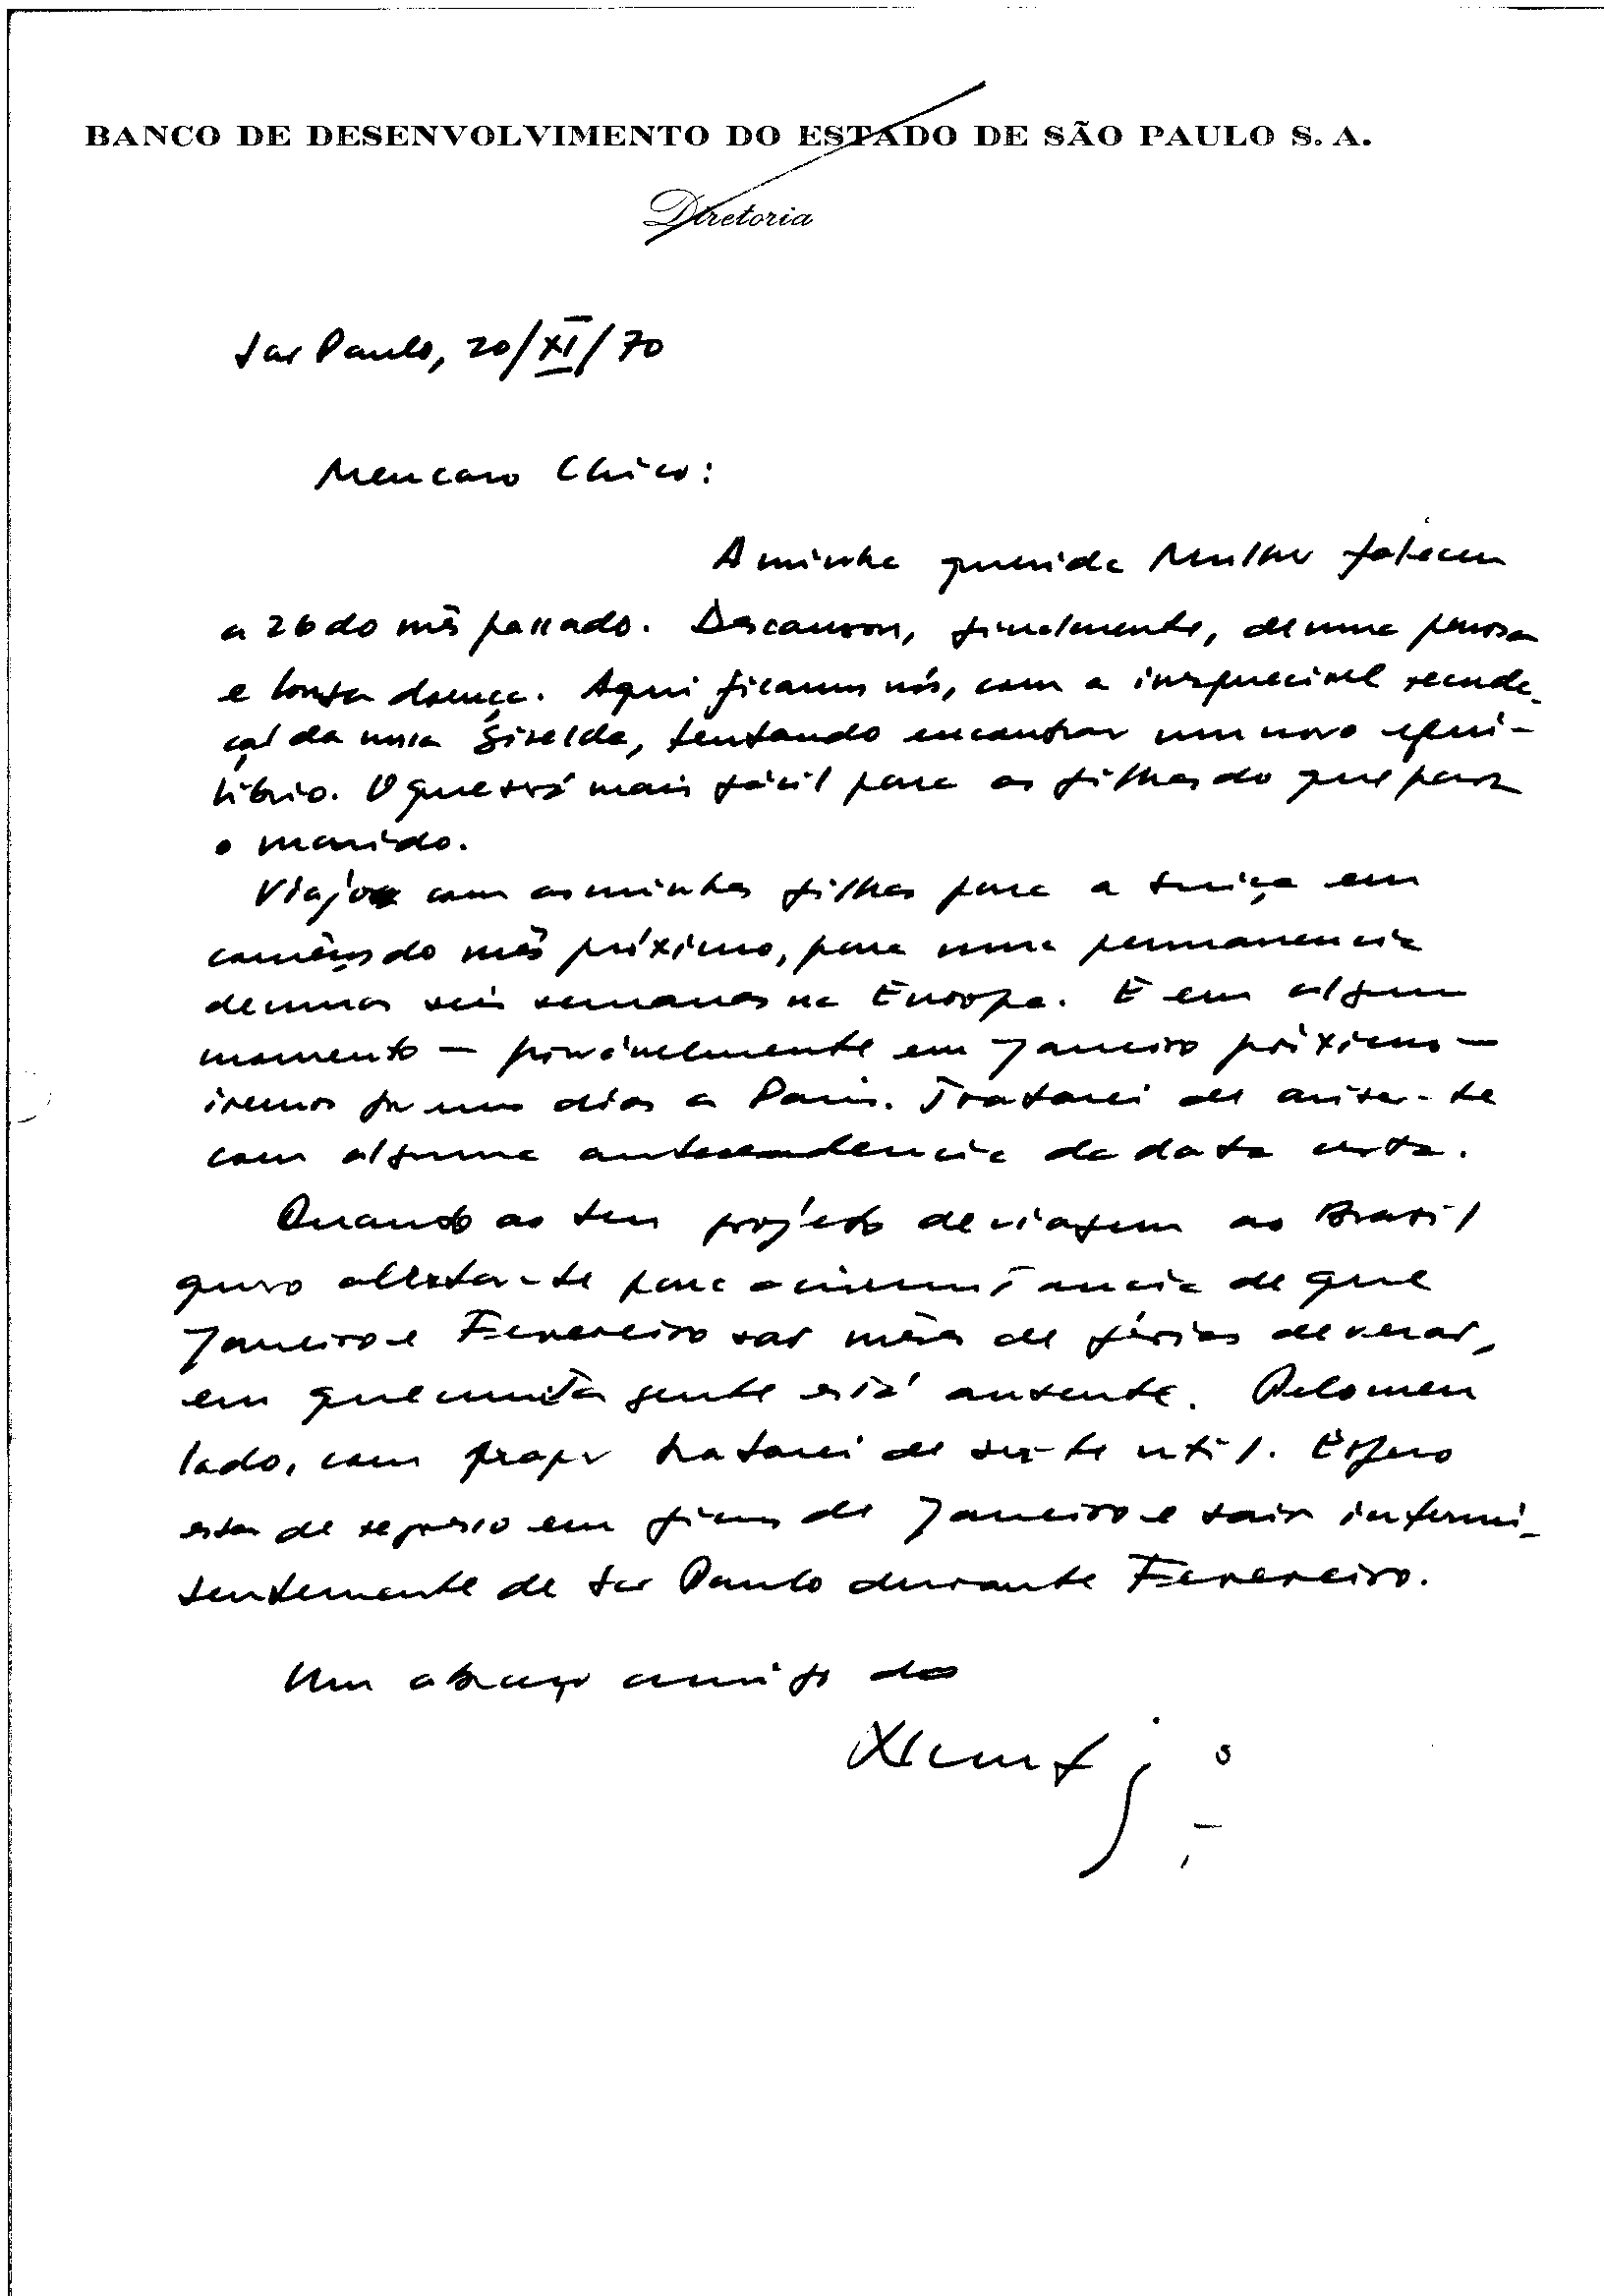 BANCO DE DESENVOLVIMENTO DO ESTADO DE SÃO PAULO S. A.
Diretoria
São Paulo, 20/XI/70
Meu caro Chico:
A minha querida Mulher faleceu
a 26 do mês passado. Descansou, finalmente, de uma penosa
e longa doença. Aqui ficamos nós, com a inesquecível recorda-
ção da nossa Giselda, tentando encontrar um novo equi-
líbrio. O que será mais fácil para as filhas do que para
o marido.
Viajo com as minhas filhas para a Suiça em
começos do mês próximo, para uma permanencia
de umas seis semanas na Europa. E em algum
momento — provàvelmente em Janeiro próximo —
iremos por uns dias a Paris. Tratarei de avisar-te
com alguma antecedencia da data certa.
Quando ao teu projeto de viagem ao Brasil
quero alertar-te para a circunstancia de que
Janeiro e Fevereiro são mêses de férias de verão,
em que muita gente está ausente. Pelo meu
lado, com prazer tratarei de ser-te util. Espero
estar de regresso em fins de Janeiro e sair intermi-
tentemente de São Paulo durante Fevereiro.
Um abraço amigo do